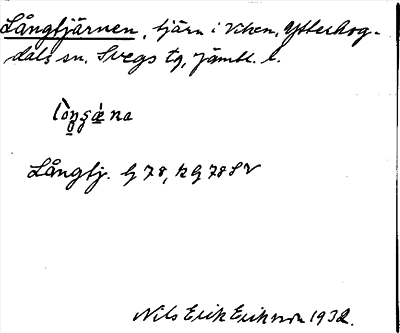 Långtjärnen, tjärn i Viken, Ytterhog-
dals sn. Svegs tg, Jämtl. l.
Långtj. G 78, kG 78 SV
Nils Erik Eriksson 1932.